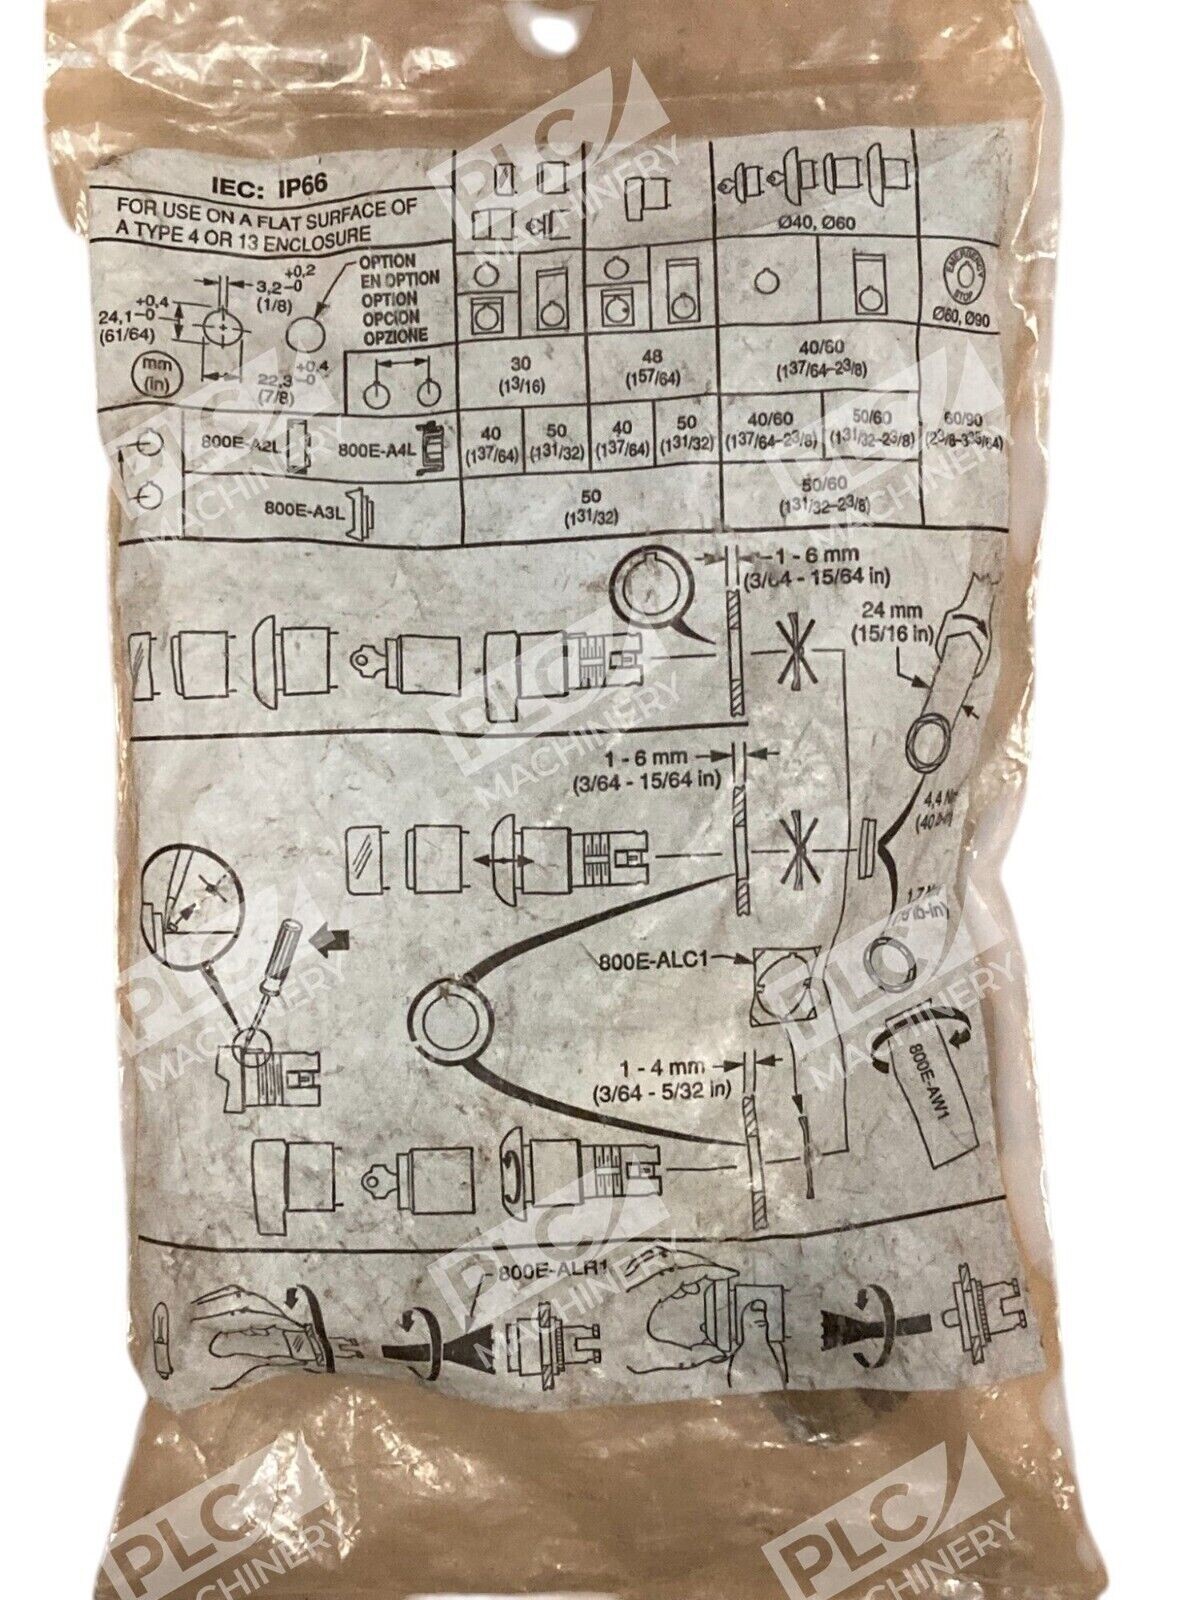 IEC: IP66
FOR USE ON A FLAT SURFACE OF
A TYPE 4 OR 13 ENCLOSURE
Ø40, Ø60
EMERGENCY
STOP
Ø60, Ø90
+0,2
3,2-0
(1/8)
+0,4
24,1-0
(61/64)
mm
(in)
+0,4
22,3-0
(7/8)
OPTION
EN OPTION
OPTION
OPCION
OPZIONE
30
(13/16)
48
(157/64)
40/60
(137/64-23/8)
800E-A2L
800E-A4L
40
(137/64)
50
(131/32)
40
(137/64)
50
(131/32)
40/60
(137/64-23/8)
50/60
(131/32-23/8)
60/90
800E-A3L
50
(131/32)
50/60
(131/32-23/8)
1 - 6 mm
(3/64 - 15/64 in)
24 mm
(15/16 in)
1 - 6 mm
(3/64 - 15/64 in)
4,4
800E-ALC1
1 - 4 mm
(3/64 - 5/32 in)
800E-AW1
800E-ALR1
PLC
MACHINERY